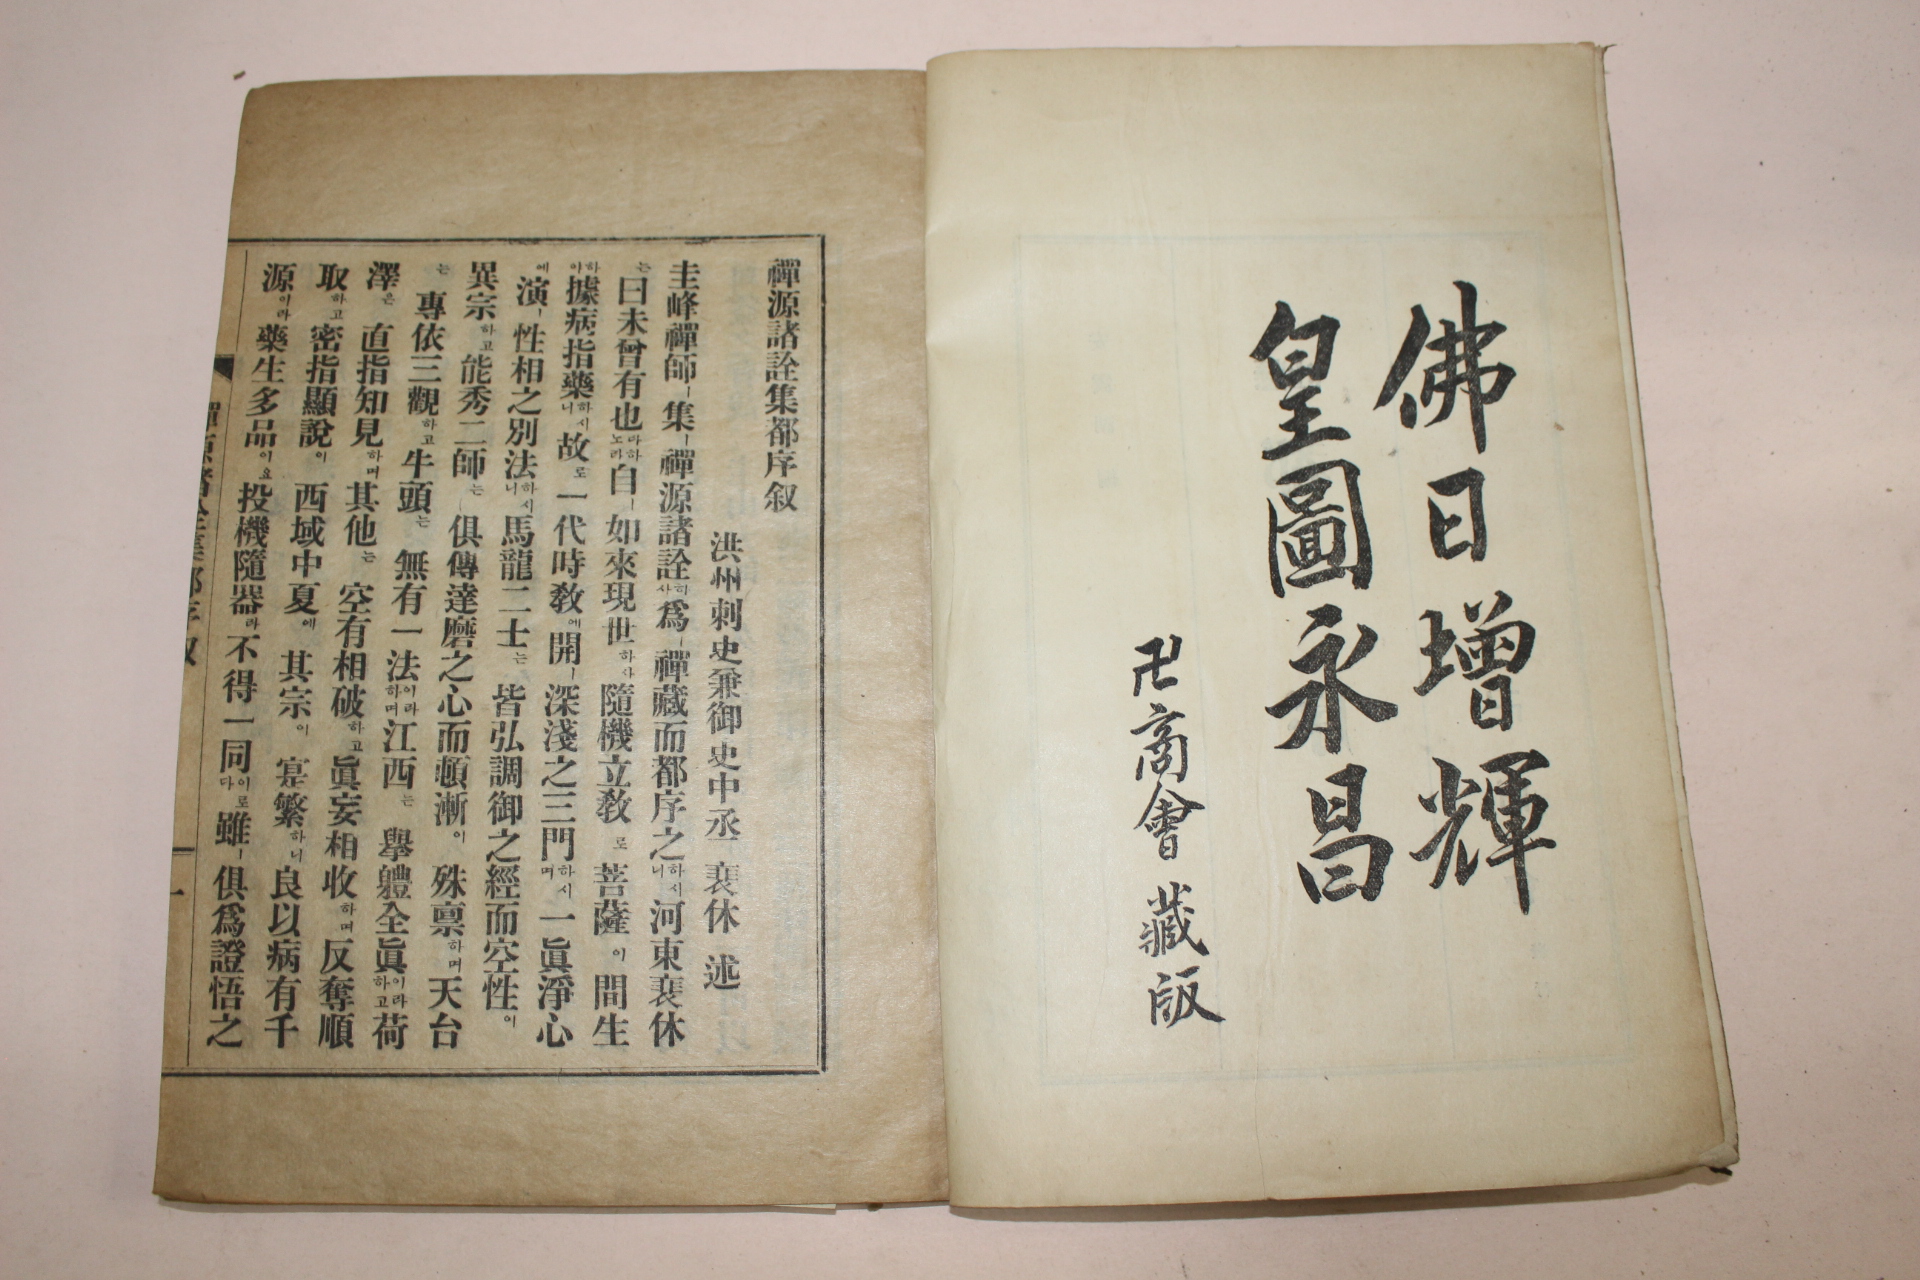 佛日增輝
皇圖永昌
卍商會藏版
禪源諸詮集都序叙
洪州刺史兼御史中丞 裵休 述
圭峰禪師ㅣ集ㅣ禪源諸詮하사爲ㅣ禪藏而都序之하시니河東裵休
는曰未曾有也라하노라自ㅣ如來現世하사隨機立敎로菩薩이間生
하야據病指藥하시니故로一代時敎에開ㅣ深淺之三門하시며一眞淨心
에演ㅣ性相之別法하시니馬龍二士는皆弘調御之經而空性이
異宗하고能秀二師는俱傳達磨之心而頓漸이殊禀하며天台
는專依三觀하고牛頭는無有一法이라하며江西는擧軆全眞이라하고荷
澤은直指知見하며其他는空有相破하고眞妄相收하며反奪順
取하고密指顯說이西域中夏에其宗이寔繁하니良以病有千
源이라藥生多品이요投機隨器라不得一同이로다雖ㅣ俱爲證悟之
禪源諸詮集都序叙
一